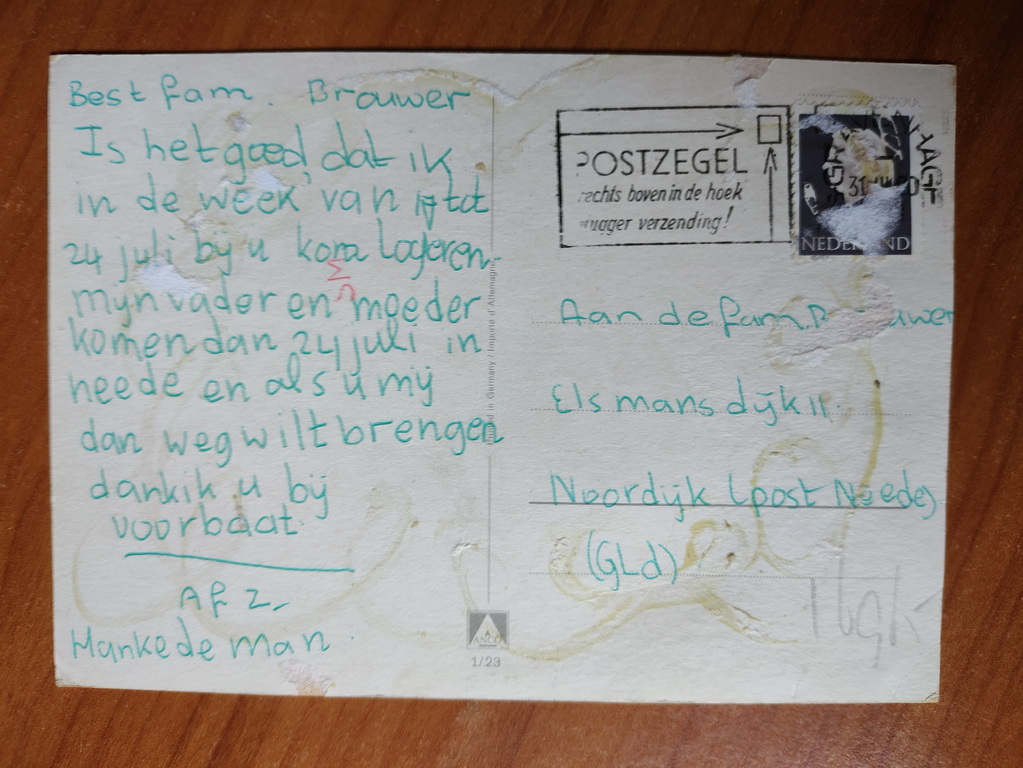 Best fam. Brouwer
Is het goed, dat ik
in de week van 17 tot
24 juli by u kom logeren.
mijn vader en moeder
komen dan 24 juli in
neede en als u mij
dan weg wilt brengen
dank ik u bij
voorbaat.
Af z.
Hanke de man.
in Germany / Importé d'Allemagne
ANCO
1/23
POSTZEGEL
rechts boven in de hoek
vlugger verzending!
31
NEDERLAND
Aan de fam. Brouwer
Elsmansdijk 11.
Noordijk (post Neede)
(GLd)